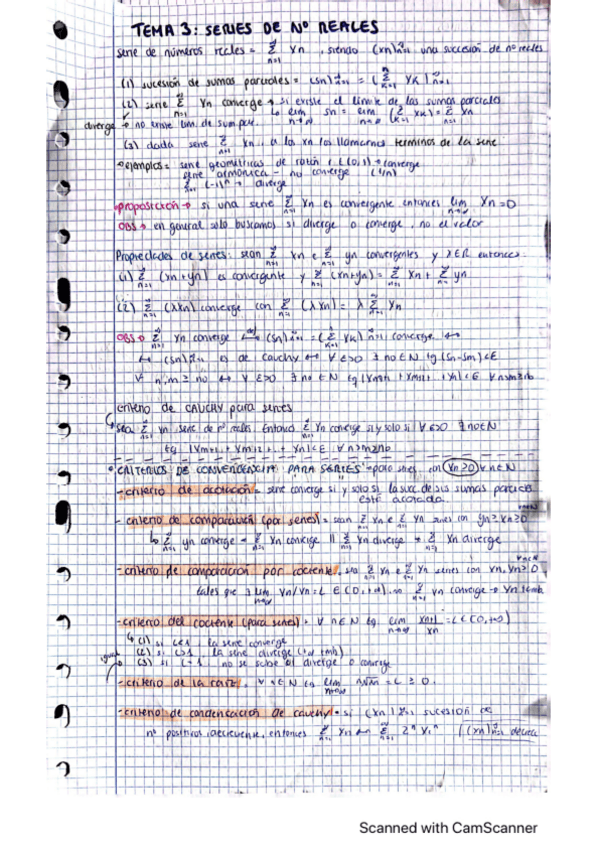 TEMA 3: SERIES DE Nº REALES
serie de números reales = Σ xn , siendo (xn)n=1 una sucesión de nº reales
(1) sucesión de sumas parciales = (sn)n=1 = (Σ xk)n=1
(2) serie Σ xn converge → si existe el límite de las sumas parciales
↳ lim sn = lim (Σ xk) = Σ xn
diverge → no existe lim. de
(3) dada serie Σ xn, a los xn los llamamos terminos de la serie
ejemplos = serie geométricas de razón r ∈ (0,1) → converge
serie armónica - no converge (1/n)
Σ (-1)^n → diverge
proposición → si una serie Σ xn es convergente entonces lim xn = 0
OBS → en general solo buscamos si diverge o converge, no el valor
Propiedades de series: sean Σ xn e Σ yn convergentes y λ∈R entonces:
(1) Σ (xn+yn) es convergente y Σ (xn+yn) = Σ xn + Σ yn
(2) Σ (λxn) converge con Σ (λxn) = λ Σ xn
OBS → Σ xn converge ↔ (sn)n=1 = (Σ xk)n=1 converge ↔
↔ (sn)n=1 es de Cauchy ↔ ∀ε>0 ∃ no∈N tq (sn-sm)<ε
∀ n,m ≥ no ↔ ∀ε>0 ∃ no∈N tq
criterio de CAUCHY para series
sea Σ xn serie de nº reales. Entonces Σ xn converge si y solo si ∀ε>0 ∃no∈N
tq. |xm+1 + xm+2 + ... + xn|<ε ∀n>m≥no
CRITERIOS DE CONVERGENCIA PARA SERIES → para series con xn≥0 ∀n∈N
- criterio de acotación = serie converge si y solo si la suc. de sus sumas parciales
está acotada.
- criterio de comparación (por series) = sean Σ xn e Σ yn series con yn≥xn≥0 ∀n∈N
↳ Σ yn converge → Σ xn converge || Σ xn diverge → Σ yn diverge
- criterio de comparación por cociente, sea Σ xn e Σ yn series con xn, yn>0 ∀n∈N
tales que ∃ lim xn/yn = L ∈ (0,+∞) Σ yn converge → xn tamb.
- criterio del cociente (para series) = ∀ n∈N tq. lim xn+1/xn = L
(1) si L<1 la serie converge
(2) si L>1 la serie diverge
(3) si L=1 no se sabe si diverge o converge
igual
- criterio de la raíz = ∀ n∈N tq lim n√xn = L ≥ 0.
- criterio de condensación de cauchy = si (xn)n=1 sucesión de
nº positivos decreciente, entonces Σ xn ↔ Σ 2^n
Scanned with CamScanner